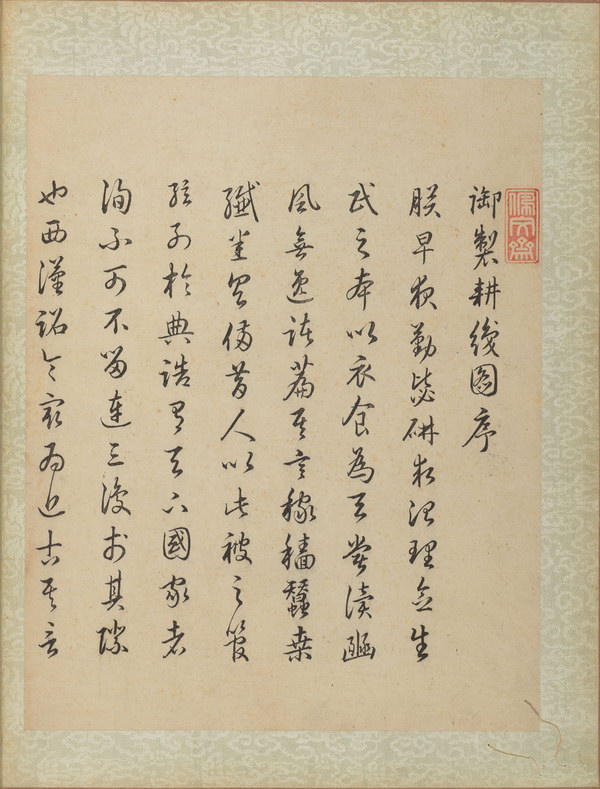 佩文齋
御製耕織圖序
朕早夜勤毖研求治理念生
民之本以衣食為天嘗讀豳
風無逸諸篇其言稼穡蠶桑
纖悉具備昔人以此被之管
絃列於典誥有天下國家者
洵不可不留連三復於其際
也西漢詔令最為近古其言